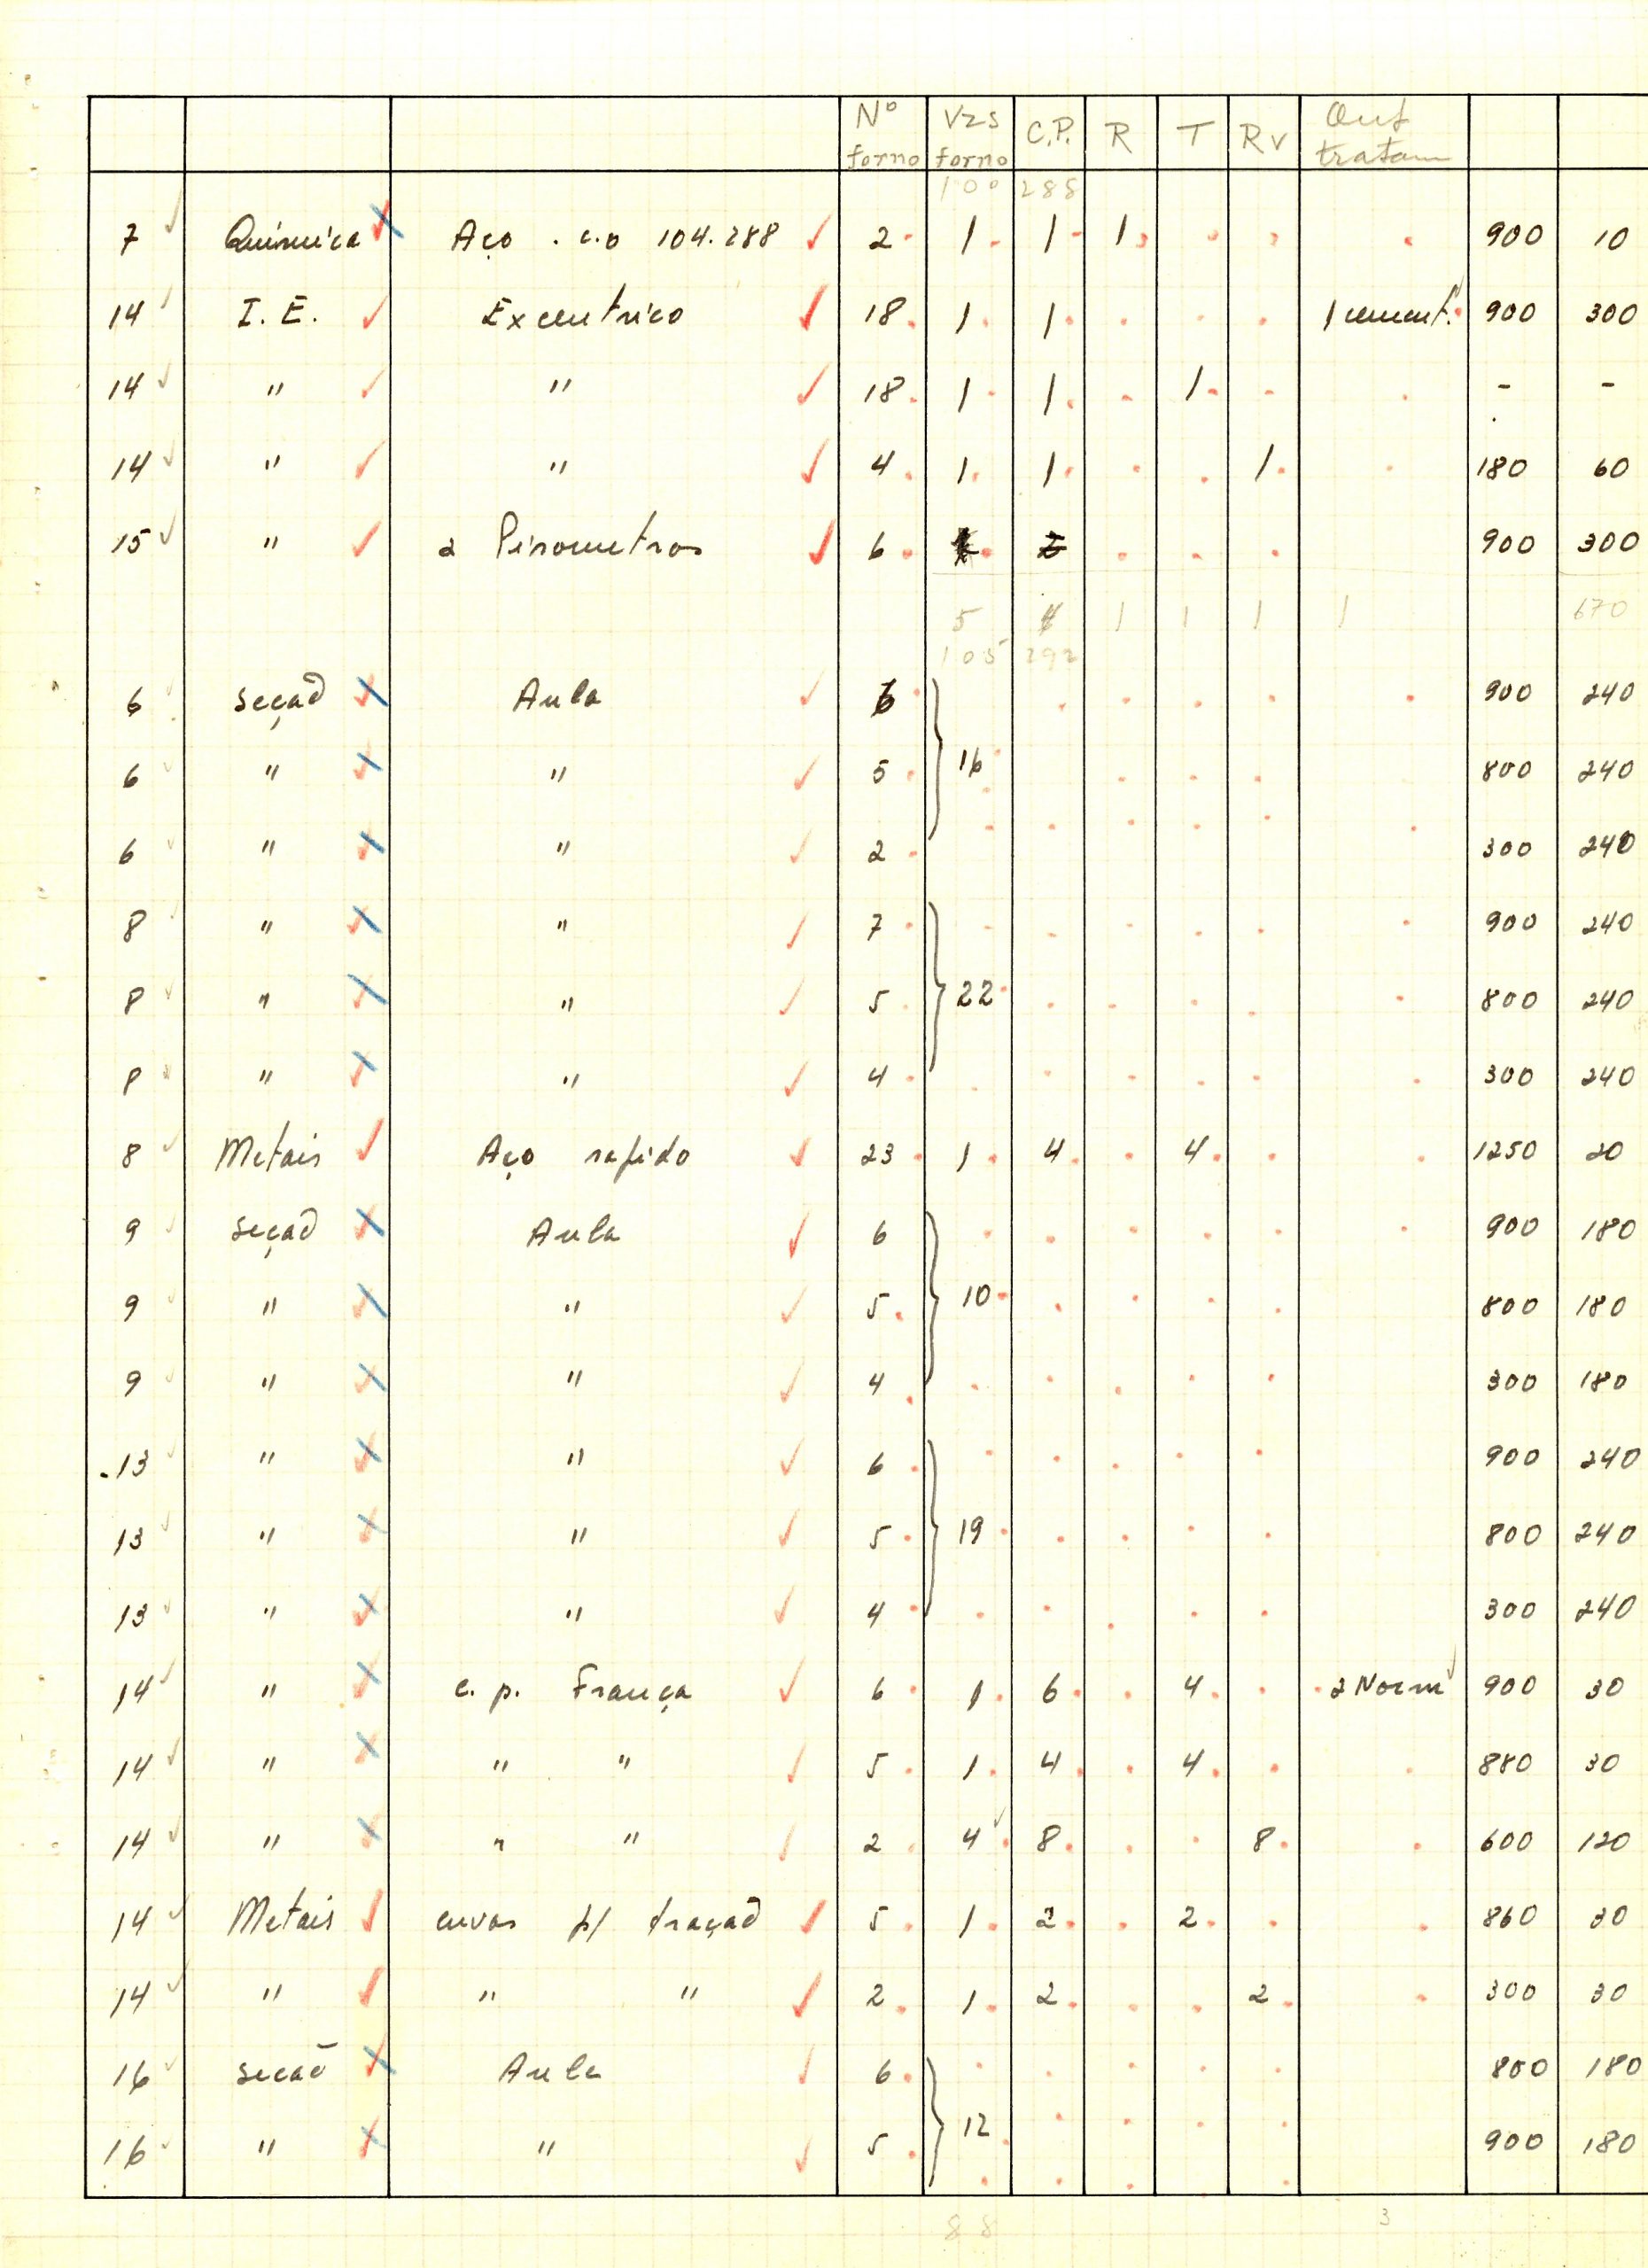 Nº forno Vzs forno C.P. R T Rv Out tratam
100 288
7 Química Aço . c.o 104.288 2 1 1 1 900 10
14 I. E. Excentrico 18 1 1 1 cement. 900 300
14 " " 18 1 1 1 - -
14 " " 4 1 1 1 180 60
15 " 2 Pirometros 6 900 300
5 4 1 1 1 1 670
105 292
6 seção Aula 6 900 240
6 " " 5 16 800 240
6 " " 2 300 240
8 " " 7 900 240
8 " " 5 22 800 240
8 " " 4 300 240
8 Metais Aço rapido 23 1 4 4 1250 20
9 seção Aula 6 900 180
9 " " 5 10 800 180
9 " " 4 300 180
13 " " 6 900 240
13 " " 5 19 800 240
13 " " 4 300 240
14 " c. p. França 6 1 6 4 2 Norm 900 30
14 " " " 5 1 4 4 880 30
14 " " " 2 4 8 8 600 120
14 Metais p/ tração 5 1 2 2 860 30
14 " " " 2 1 2 2 300 30
16 secão Aula 6 800 180
16 " " 5 12 900 180
88 3